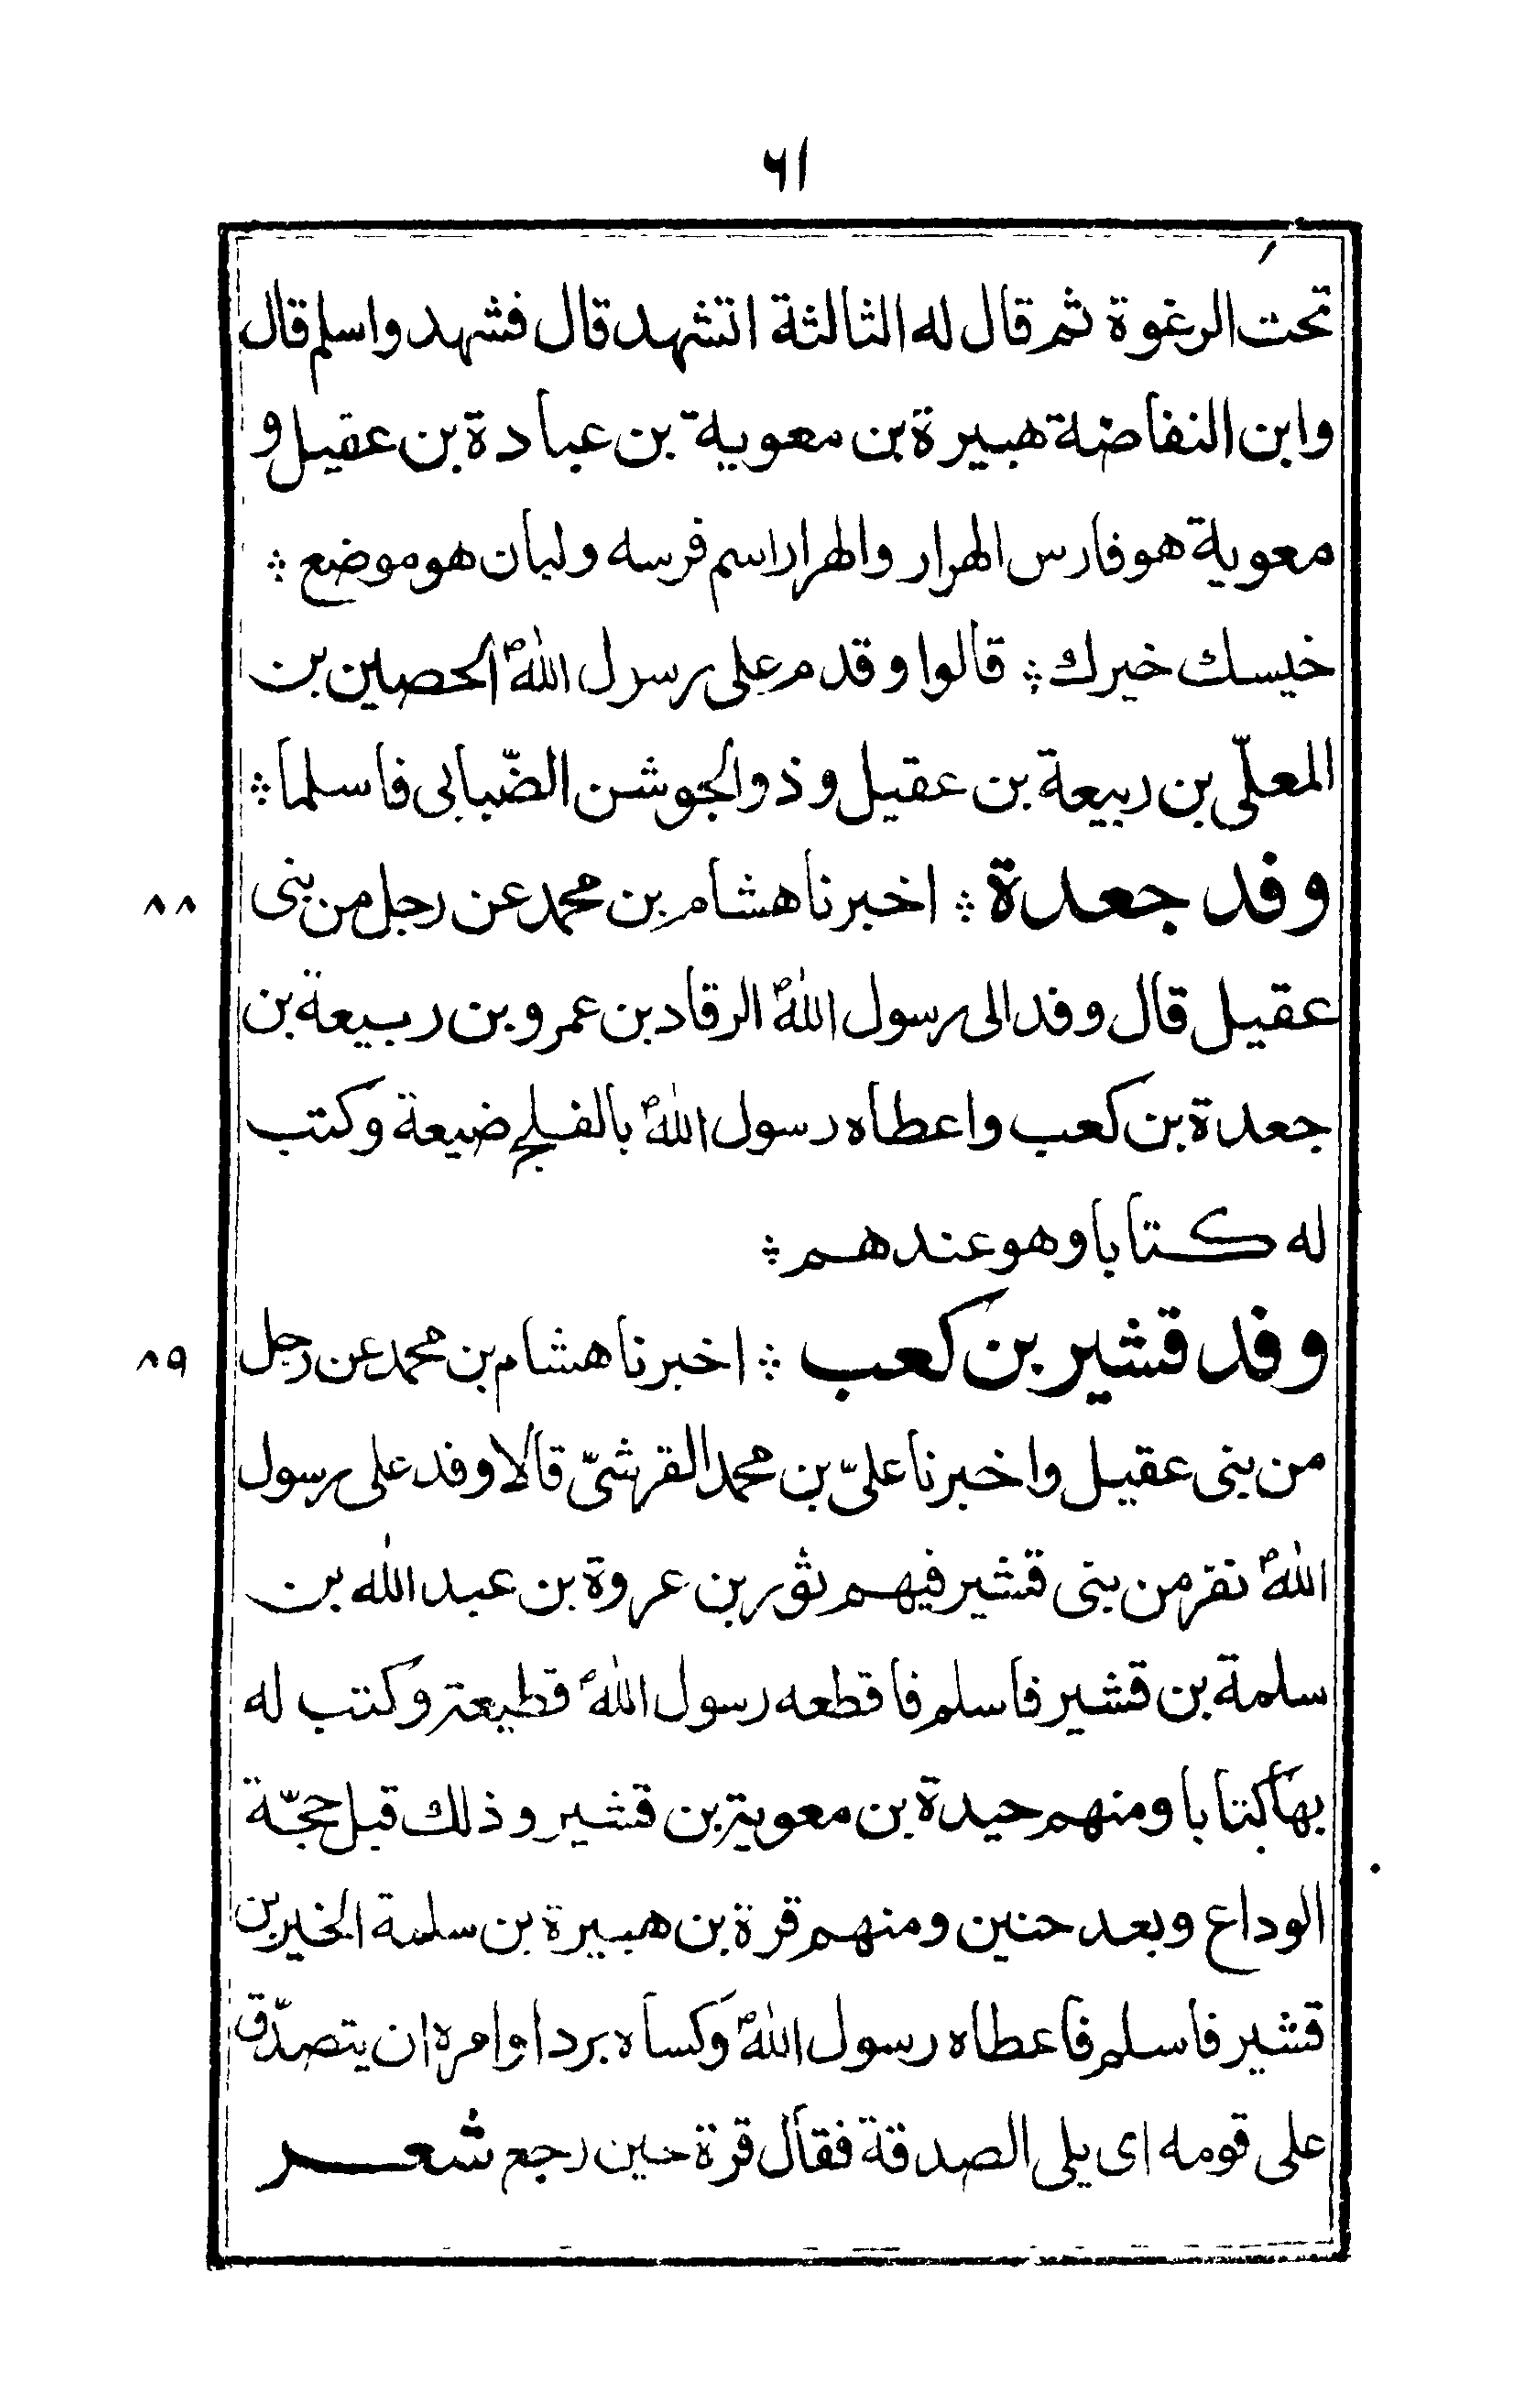 ٦١
تحت الرغوة ثم قال له الثالثة اتشهد قال فشهد واسلم قال
وابن النفاضة هبيرة بن معوية بن عبادة بن عقيل و
معوية هو فارس الهرار والهرار اسم فرسه ولبان هو موضع ؞
خيسك خيرك ؞ قالوا وقدم على رسول اللهؐ الحصين بن
المعلّى بن ربيعة بن عقيل وذو الجوشن الضّبابى فاسلما ؞
وفد جعدة ؞ اخبرنا هشام بن محمد عن رجل من بنى
٨٨
عقيل قال وفد الى رسول اللهؐ الرقاد بن عمرو بن ربيعة بن
جعدة بن كعب واعطاه رسول اللهؐ بالفلج ضيعة وكتب
له كتابا وهو عندهم ؞
وفد قشير بن كعب ؞ اخبرنا هشام بن محمد عن رجل
٨٩
من بنى عقيل واخبرنا علىّ بن محمد القرشىّ قالا وفد على رسول
اللهؐ نفر من بنى قشير فيهم ثور بن عروة بن عبد الله بن
سلمة بن قشير فاسلم فاقطعه رسول اللهؐ قطيعة وكتب له
بها كتابا ومنهم حيدة بن معوية بن قشير وذلك قبل حجّة
الوداع وبعد حنين ومنهم قرة بن هبيرة بن سلمة الخير بن
قشير فاسلم فاعطاه رسول اللهؐ وكساه بردا وامره ان يتصدّق
على قومه اى يلى الصدقة فقال قرة حين رجع شعر